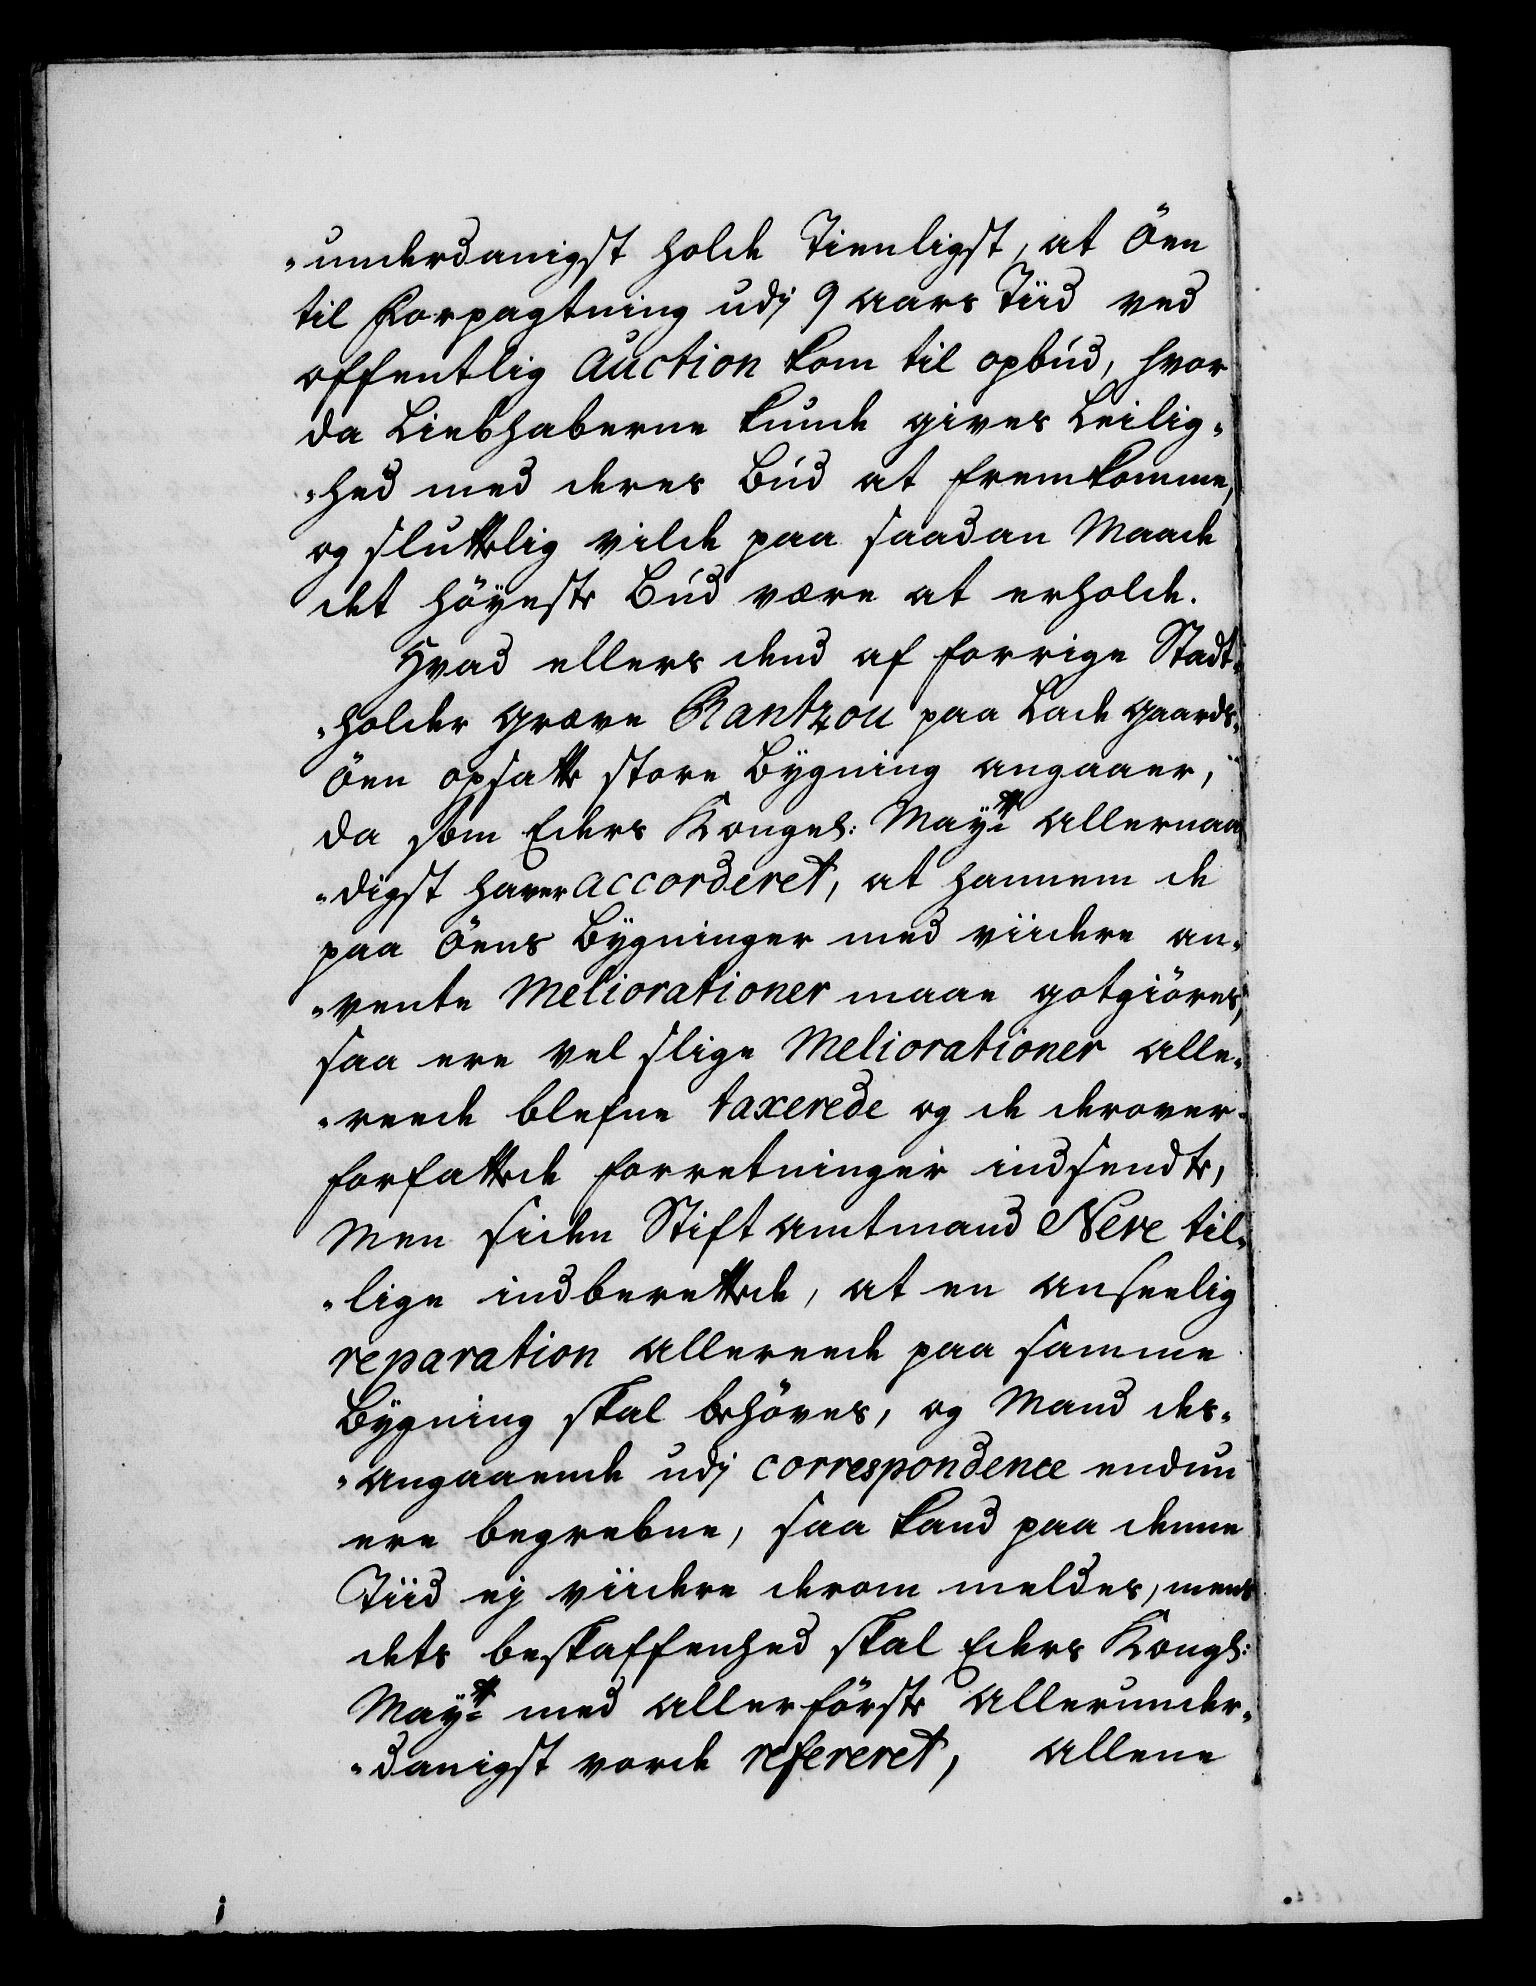 -underdanigst holde Tienligst, at Öen
til Forpagtning udj 9 Aars Tiid ved
offentlig Auction kom til opbud, hvor
da Liebhaberne kunde gives Leilig-
-hed med deres Bud at fremkomme,
og sluttelig vilde paa saadan Maade
det höyeste Bud være at erholde.
Hvad ellers dend af forrige Stadt-
-holder Græve Rantzou paa Ladegaards-
Öen opsatte store Bygning angaaer,
da som Eders Kongel: Mayᵗᵗ Allernaa
-digst haver accorderet, at hannem de
paa Öens Bygninger med viidere an-
-vente Meliorationer maae gotgiöres,
saa ere vel slige Meliorationer alle-
-reede blefne taxerede og de derover-
forfattede forretninger indsendte,
Men siden Stift Amtmand Neve til-
-lige indberettede, at en anseelig
reparation allereede paa samme
Bygning skal behöves, og Mand des-
-angaaende udj correspondence endnu
ere begrebne, saa kand paa denne
Tiid ej viidere derom meldes, mens
dets beskaffenhed skal Eders Kongl:
Mayᵗᵗ med allerförste allerunder-
-danigst vorde refereret, allene